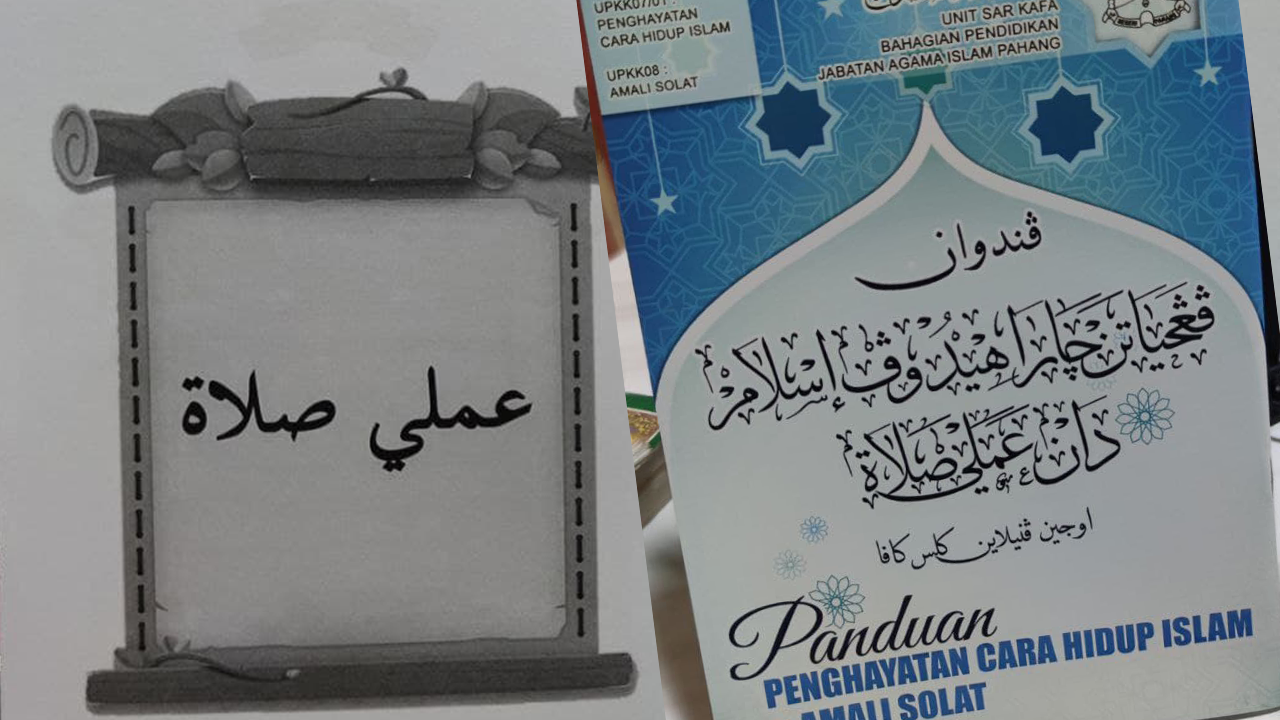 عملي صلاة
UPKK07/01 :
PENGHAYATAN
CARA HIDUP ISLAM
UPKK08 :
AMALI SOLAT
UNIT SAR KAFA
BAHAGIAN PENDIDIKAN
JABATAN AGAMA ISLAM PAHANG
ڤندوان
ڤڠحياتن چارا هيدوڤ إسلام
دان عملي صلاة
اوجين ڤنيلاين كلس كافا
Panduan
PENGHAYATAN CARA HIDUP ISLAM
AMALI SOLAT